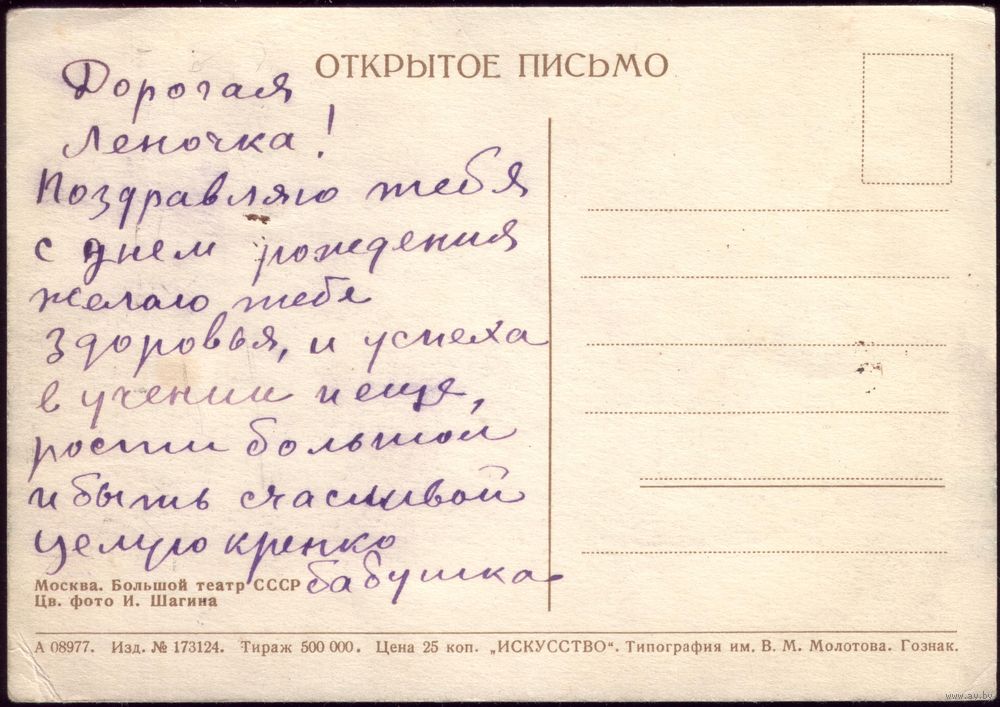 ОТКРЫТОЕ ПИСЬМО
Дорогая
Леночка!
Поздравляю тебя
с днем рождения
желаю тебе
здоровья, и успеха
в учении и еще,
рости большой
и быть счасливой
целую крепко
бабушка.
Москва. Большой театр СССР
Цв. фото И. Шагина
А 08977. Изд. № 173124. Тираж 500 000. Цена 25 коп. „ИСКУССТВО“. Типография им. В. М. Молотова. Гознак.
www.ay.by